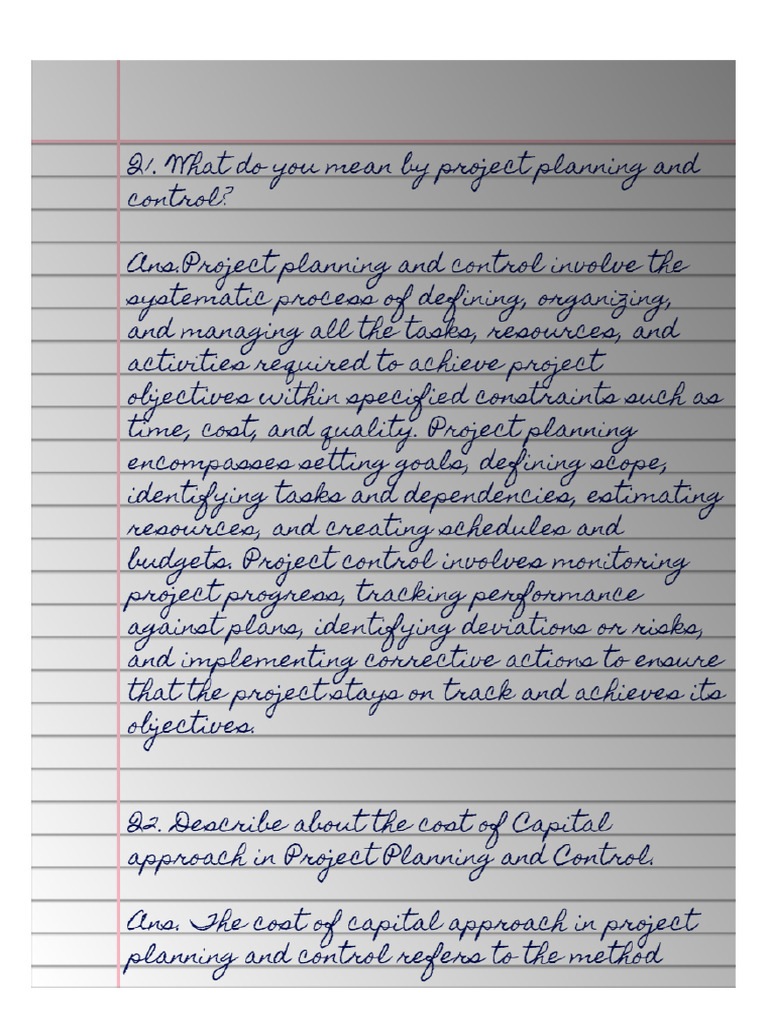 Q1. What do you mean by project planning and
control?
Ans.Project planning and control involve the
systematic process of defining, organizing,
and managing all the tasks, resources, and
activities required to achieve project
objectives within specified constraints such as
time, cost, and quality. Project planning
encompasses setting goals, defining scope,
identifying tasks and dependencies, estimating
resources, and creating schedules and
budgets. Project control involves monitoring
project progress, tracking performance
against plans, identifying deviations or risks,
and implementing corrective actions to ensure
that the project stays on track and achieves its
objectives.
Q2. Describe about the cost of Capital
approach in Project Planning and Control.
Ans. The cost of capital approach in project
planning and control refers to the method